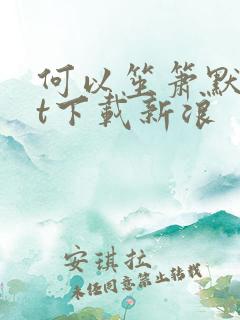 何以笙箫默
t下载新浪
安琪拉
未经同意禁止转载